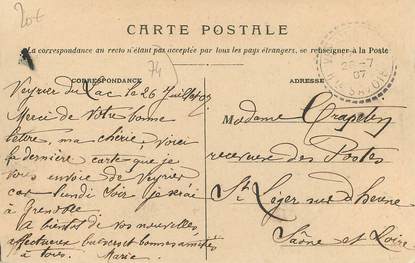 20€
CARTE POSTALE
La correspondance au recto n'étant pas acceptée par tous les pays étrangers, se renseigner à la Poste
CORRESPONDANCE
74
ADRESSE
26-7
07
HTE SAVOIE
Veyrier du Lac le 26 Juillet 07
Merci de votre bonne
lettre, ma chérie, voici
la dernière carte que je
vous envoie de Veyrier
car lundi soir je serai
à Grenoble.
A bientôt de vos nouvelles
affectueux baisers et bonnes amitiés
à tous. Marie
Madame
receveuse des Postes
St Léger sur dheune
Saône et Loire